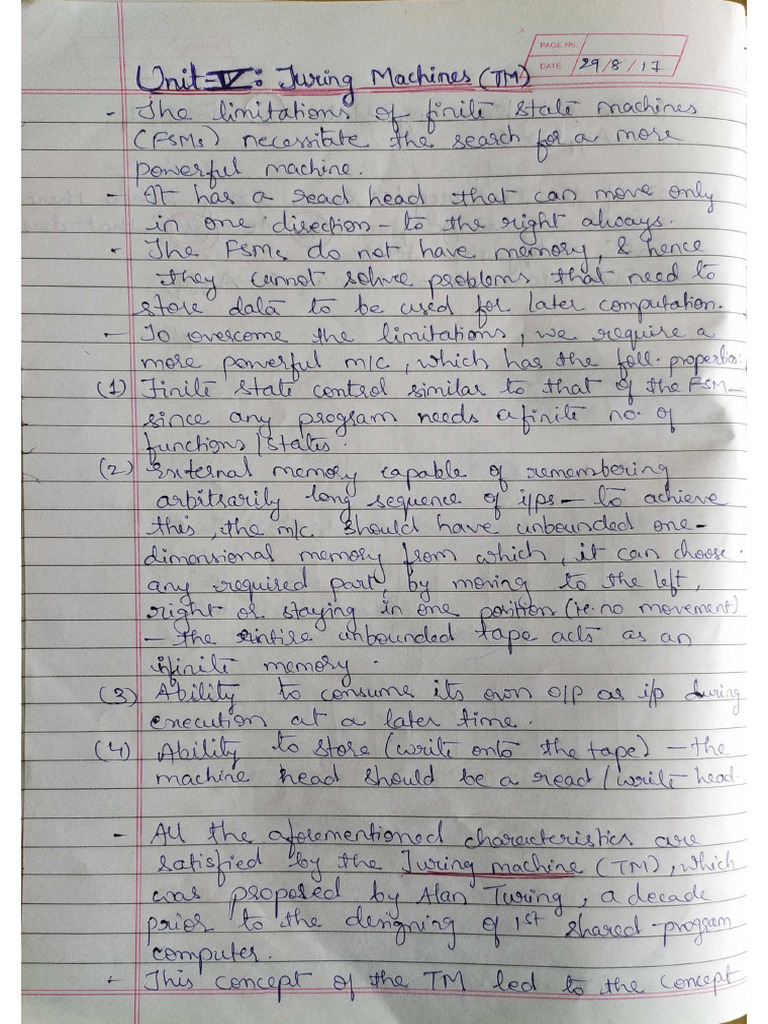 PAGE No.
DATE 29/8/17
Unit-IV: Turing Machines (TM)
- The limitations of finite state machines
(FSMs) necessitate the search for a more
powerful machine.
- It has a read head that can move only
in one direction - to the right always.
- The FSMs do not have memory, & hence
they cannot solve problems that need to
store data to be used for later computation.
- To overcome the limitations, we require a
more powerful m/c, which has the foll. properties:
(1) Finite state control similar to that of the FSM -
since any program needs a finite no. of
functions/states.
(2) External memory capable of remembering
arbitrarily long sequence of i/ps - to achieve
this, the m/c should have unbounded one-
dimensional memory from which, it can choose
any required part, by moving to the left,
right or staying in one position (ie. no movement)
- the entire unbounded tape acts as an
infinite memory.
(3) Ability to consume its own o/p as i/p during
execution at a later time.
(4) Ability to store (write onto the tape) - the
machine head should be a read/write head.
- All the aforementioned characteristics are
satisfied by the Turing machine (TM), which
was proposed by Alan Turing, a decade
prior to the designing of 1st shared-program
computer.
- This concept of the TM led to the concept